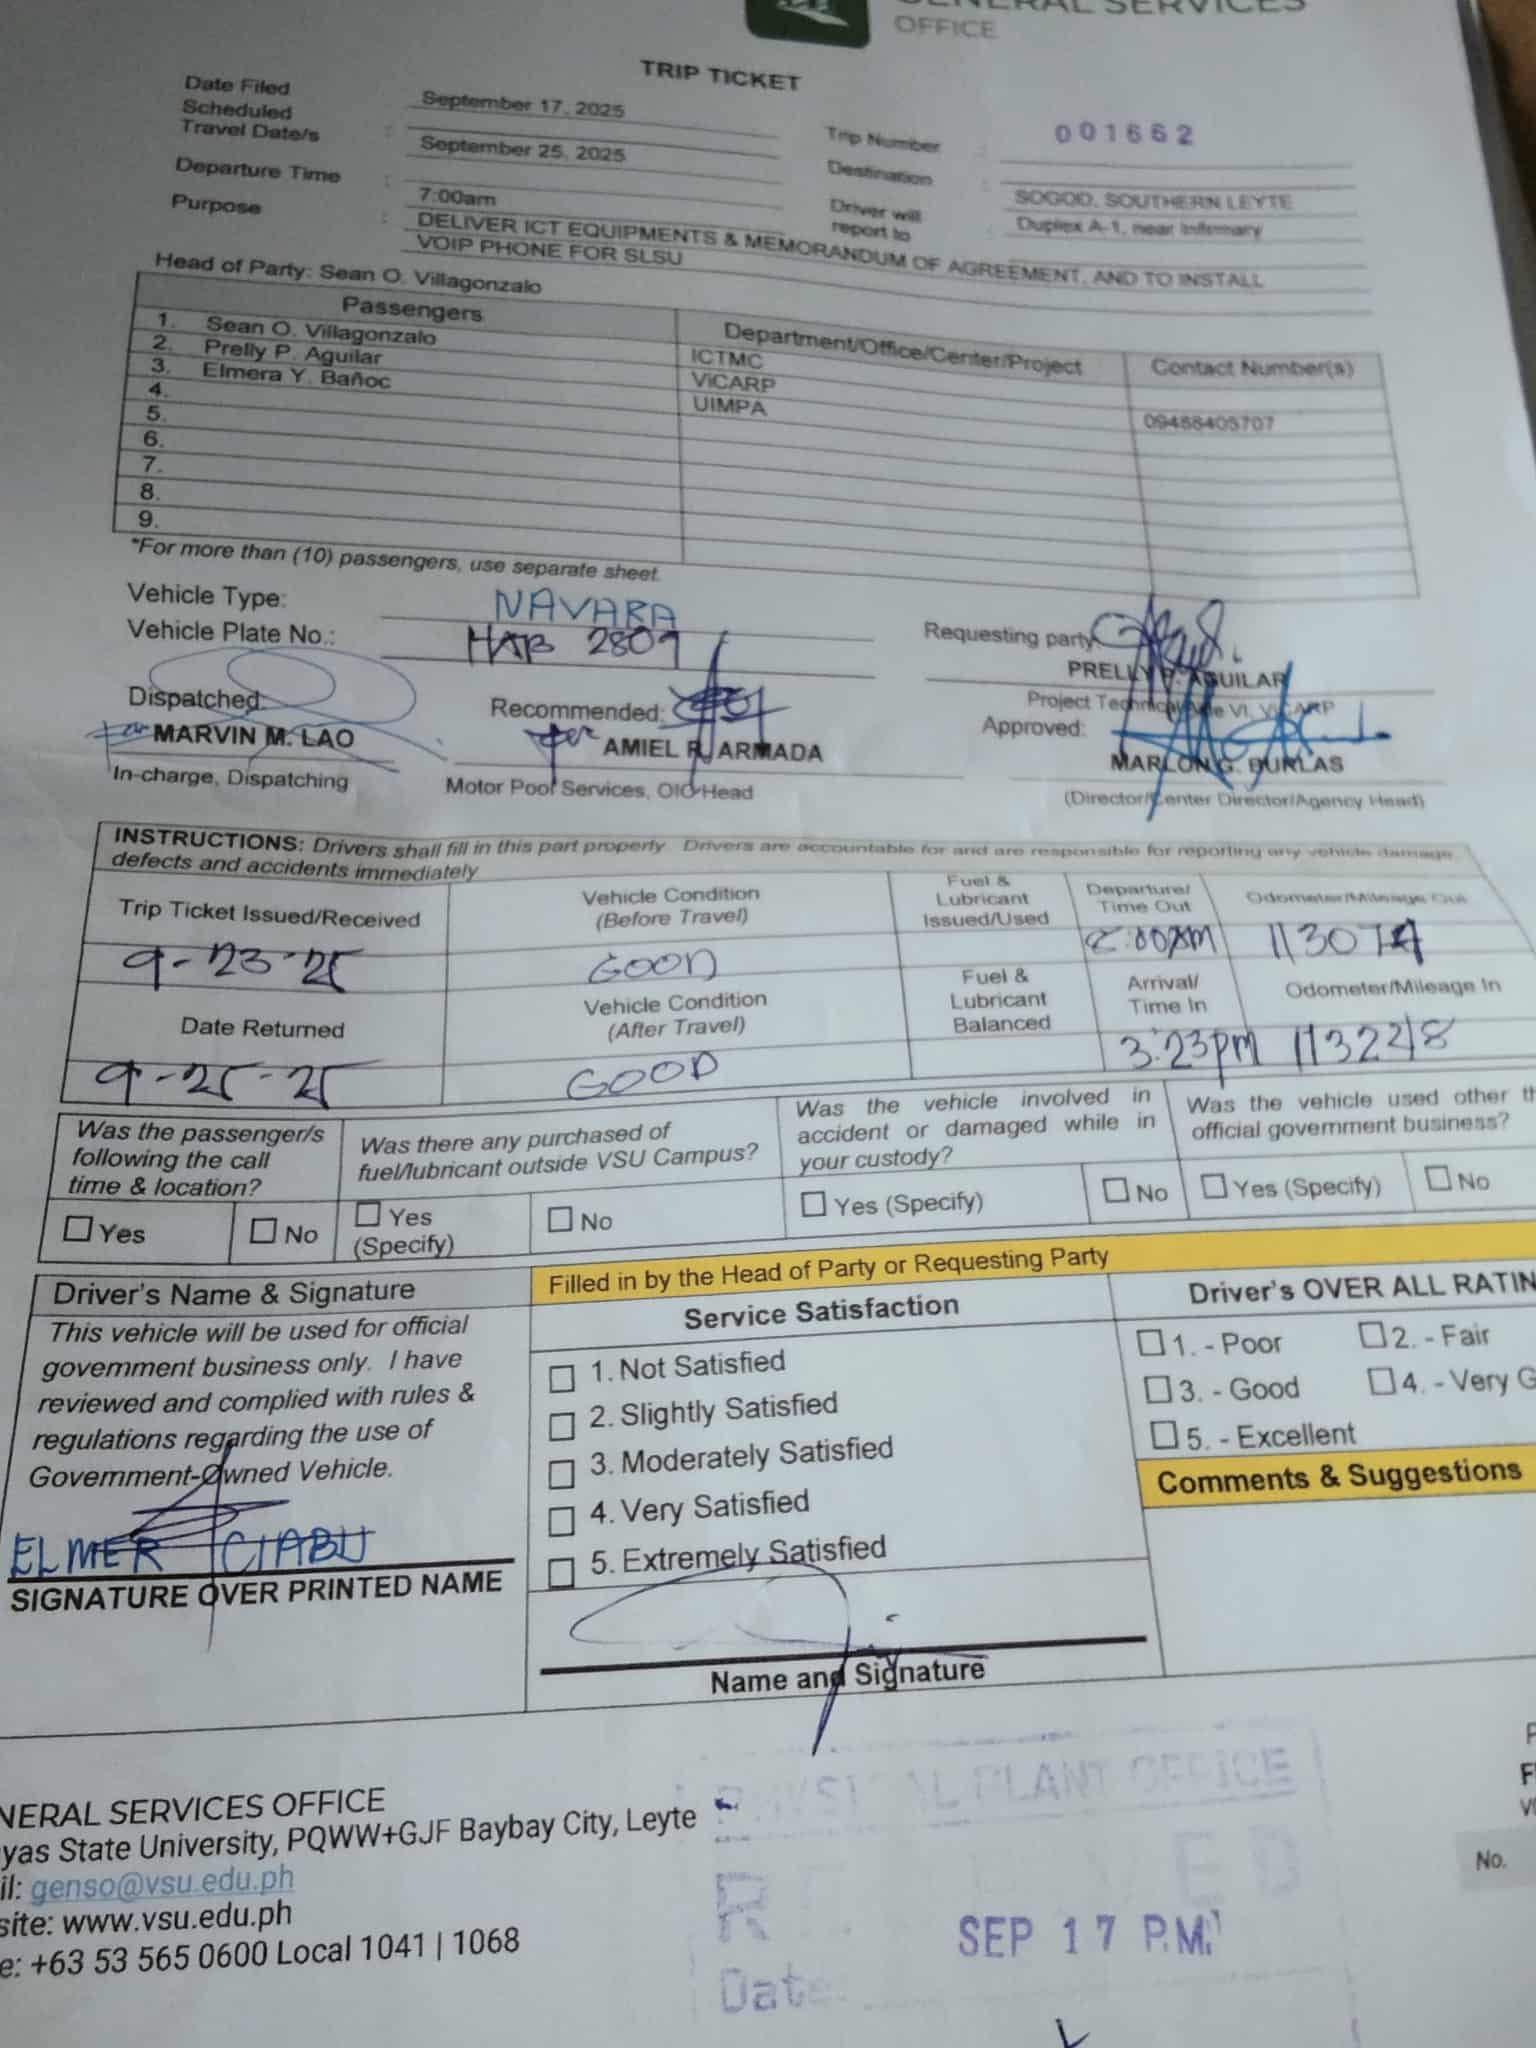 GENERAL SERVICES
OFFICE
TRIP TICKET
Date Filed September 17, 2025
Scheduled Travel Date/s : September 25, 2025
Trip Number : 001662
Departure Time : 7:00am
Destination : SOGOD, SOUTHERN LEYTE
Driver will report to : Duplex A-1, near Infirmary
Purpose : DELIVER ICT EQUIPMENTS & MEMORANDUM OF AGREEMENT, AND TO INSTALL
VOIP PHONE FOR SLSU
Head of Party: Sean O. Villagonzalo
Passengers Department/Office/Center/Project Contact Number(s)
1. Sean O. Villagonzalo ICTMC
2. Prelly P. Aguilar ViCARP
3. Elmera Y. Bañoc UIMPA 09488405707
4.
5.
6.
7.
8.
9.
*For more than (10) passengers, use separate sheet.
Vehicle Type: NAVARA
Vehicle Plate No.: HAB 2809
Requesting party:
PRELLY P. AGUILAR
Project Technical Aide VI, ViCARP
Dispatched: Recommended: Approved:
for MARVIN M. LAO for AMIEL R. ARMADA MARLON G. BURLAS
In-charge, Dispatching Motor Pool Services, OIC Head (Director/Center Director/Agency Head)
INSTRUCTIONS: Drivers shall fill in this part properly. Drivers are accountable for and are responsible for reporting any vehicle damage,
defects and accidents immediately
Trip Ticket Issued/Received Vehicle Condition (Before Travel) Fuel & Lubricant Issued/Used Departure/ Time Out Odometer/Mileage Out
9-23-25 GOOD
Date Returned Vehicle Condition (After Travel) Fuel & Lubricant Balanced Arrival/ Time In Odometer/Mileage In
9-25-25 GOOD 3:23pm 113228
Was the passenger/s following the call time & location?
Was there any purchased of fuel/lubricant outside VSU Campus?
Was the vehicle involved in accident or damaged while in your custody?
Was the vehicle used other th
official government business?
Yes No Yes (Specify) No Yes (Specify) No Yes (Specify) No
Driver's Name & Signature
This vehicle will be used for official
government business only. I have
reviewed and complied with rules &
regulations regarding the use of
Government-Owned Vehicle.
ELMER CIABU
SIGNATURE OVER PRINTED NAME
Filled in by the Head of Party or Requesting Party
Service Satisfaction
1. Not Satisfied
2. Slightly Satisfied
3. Moderately Satisfied
4. Very Satisfied
5. Extremely Satisfied
Name and Signature
Driver's OVER ALL RATIN
1. - Poor 2. - Fair
3. - Good 4. - Very G
5. - Excellent
Comments & Suggestions
NERAL SERVICES OFFICE
yas State University, PQWW+GJF Baybay City, Leyte
il: genso@vsu.edu.ph
site: www.vsu.edu.ph
e: +63 53 565 0600 Local 1041 | 1068
PLANT OFFICE
SEP 17 P.M.
Date
No.